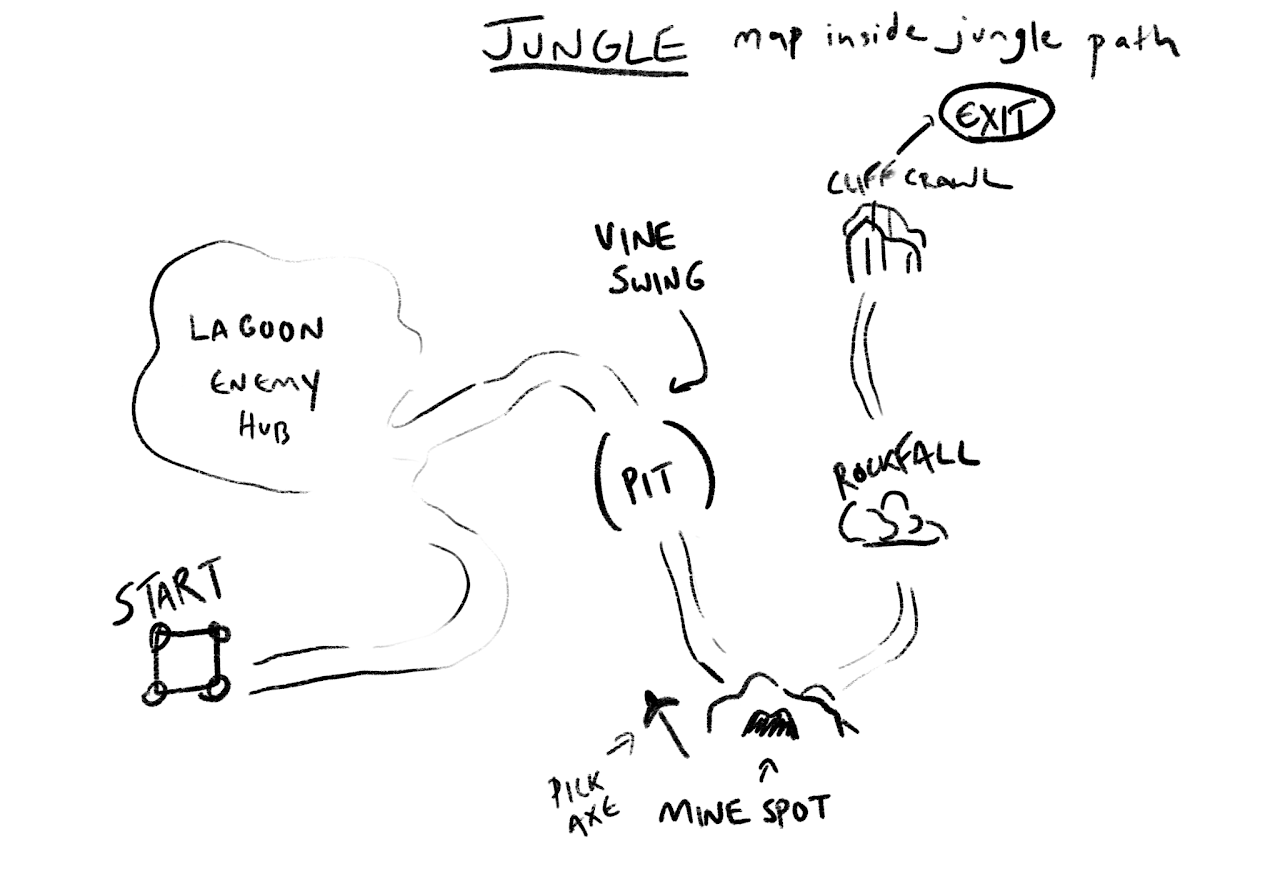 JUNGLE map inside jungle path
EXIT
CLIFF CRAWL
VINE
SWING
LAGOON
ENEMY
HUB
PIT
ROCKFALL
START
PICK
AXE
MINE SPOT